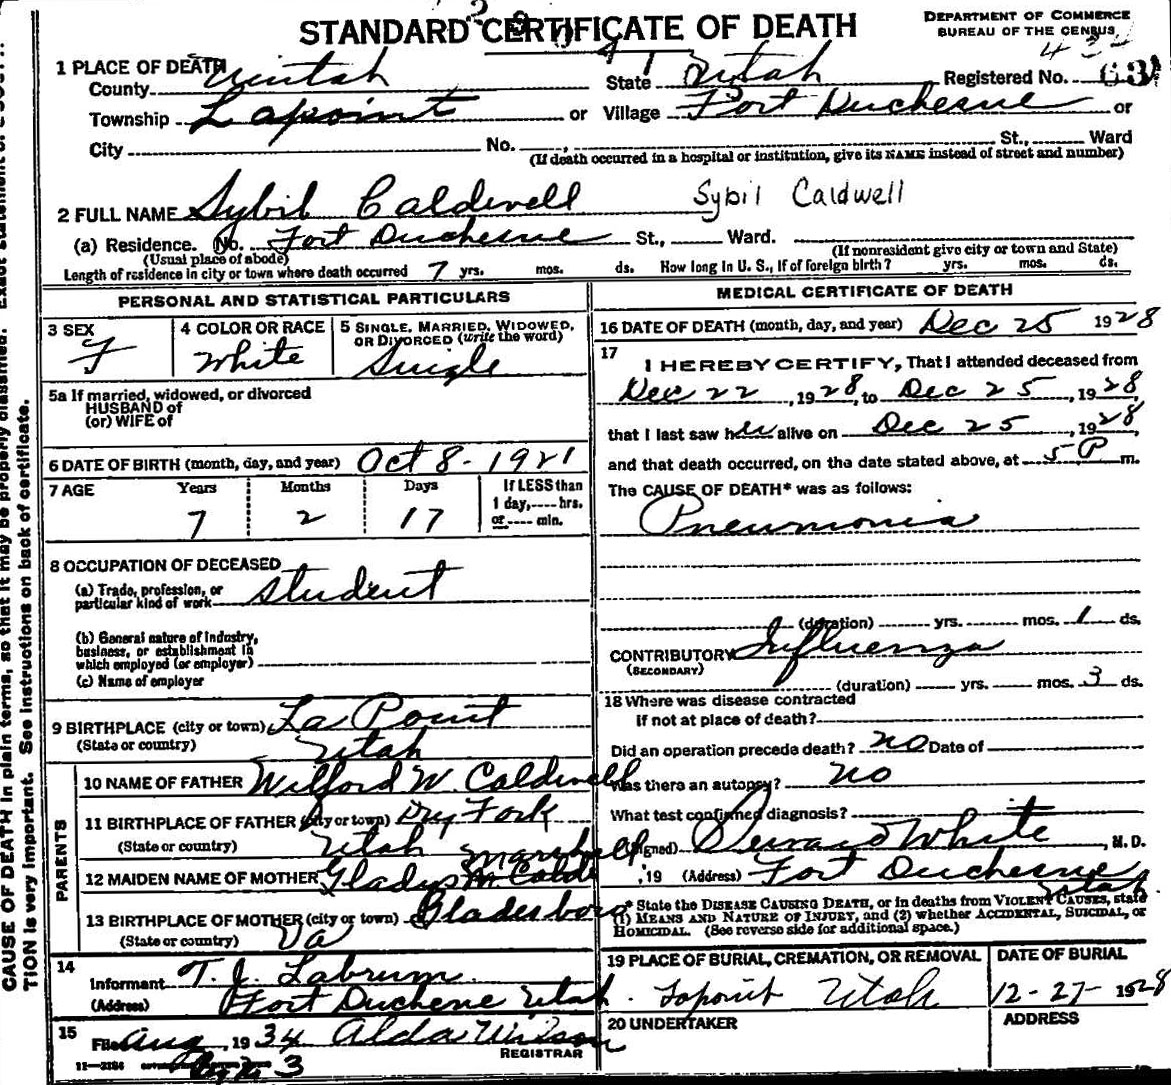 STANDARD CERTIFICATE OF DEATH
DEPARTMENT OF COMMERCE
BUREAU OF THE CENSUS
1 PLACE OF DEATH
County Uintah State Utah Registered No. 63
Township Lapoint or Village Fort Duchesne or
City No. , St., Ward
(If death occurred in a hospital or institution, give its NAME instead of street and number)
2 FULL NAME Sybil Caldwell Sybil Caldwell
(a) Residence. No. Fort Duchesne St., Ward.
(Usual place of abode) (If nonresident give city or town and State)
Length of residence in city or town where death occurred 7 yrs. mos. ds. How long in U. S., if of foreign birth? yrs. mos. ds.
PERSONAL AND STATISTICAL PARTICULARS
3 SEX F
4 COLOR OR RACE White
5 SINGLE, MARRIED, WIDOWED, OR DIVORCED (write the word) Single
5a If married, widowed, or divorced
HUSBAND of
(or) WIFE of
6 DATE OF BIRTH (month, day, and year) Oct 8 - 1921
7 AGE Years Months Days If LESS than
1 day, ---- hrs.
7 2 17 or ---- min.
8 OCCUPATION OF DECEASED
(a) Trade, profession, or
particular kind of work student
(b) General nature of industry,
business, or establishment in
which employed (or employer)
(c) Name of employer
9 BIRTHPLACE (city or town) La Point
(State or country) Utah
PARENTS
10 NAME OF FATHER Wilford W. Caldwell
11 BIRTHPLACE OF FATHER (city or town) Dry Fork
(State or country) Utah
Marshall
12 MAIDEN NAME OF MOTHER Gladys M. Caldwell
13 BIRTHPLACE OF MOTHER (city or town) Gladesboro
(State or country) Va
14
Informant T. J. Labrum
(Address) Fort Duchene Utah.
15
Filed Aug , 19 34 Alda Wilson
REGISTRAR
3
11—3184
MEDICAL CERTIFICATE OF DEATH
16 DATE OF DEATH (month, day, and year) Dec 25 1928
17
I HEREBY CERTIFY, That I attended deceased from
Dec 22 , 1928, to Dec 25 , 1928
that I last saw her alive on Dec 25 , 1928,
and that death occurred, on the date stated above, at 5 P m.
The CAUSE OF DEATH* was as follows:
Pneumonia
(duration) yrs. mos. 1 ds.
CONTRIBUTORY Influenza
(SECONDARY)
(duration) yrs. mos. 3 ds.
18 Where was disease contracted
If not at place of death?
Did an operation precede death? no Date of
Was there an autopsy? no
What test confirmed diagnosis?
(Signed) White , M. D.
, 19 (Address) Fort Duchesne
Utah
* State the DISEASE CAUSING DEATH, or in deaths from VIOLENT CAUSES, state
(1) MEANS AND NATURE OF INJURY, and (2) whether ACCIDENTAL, SUICIDAL, or
HOMICIDAL. (See reverse side for additional space.)
19 PLACE OF BURIAL, CREMATION, OR REMOVAL DATE OF BURIAL
Lapoint Utah 12-27- 1928
20 UNDERTAKER ADDRESS
CAUSE OF DEATH in plain terms, so that it may be properly classified.
TION is very important. See instructions on back of certificate.